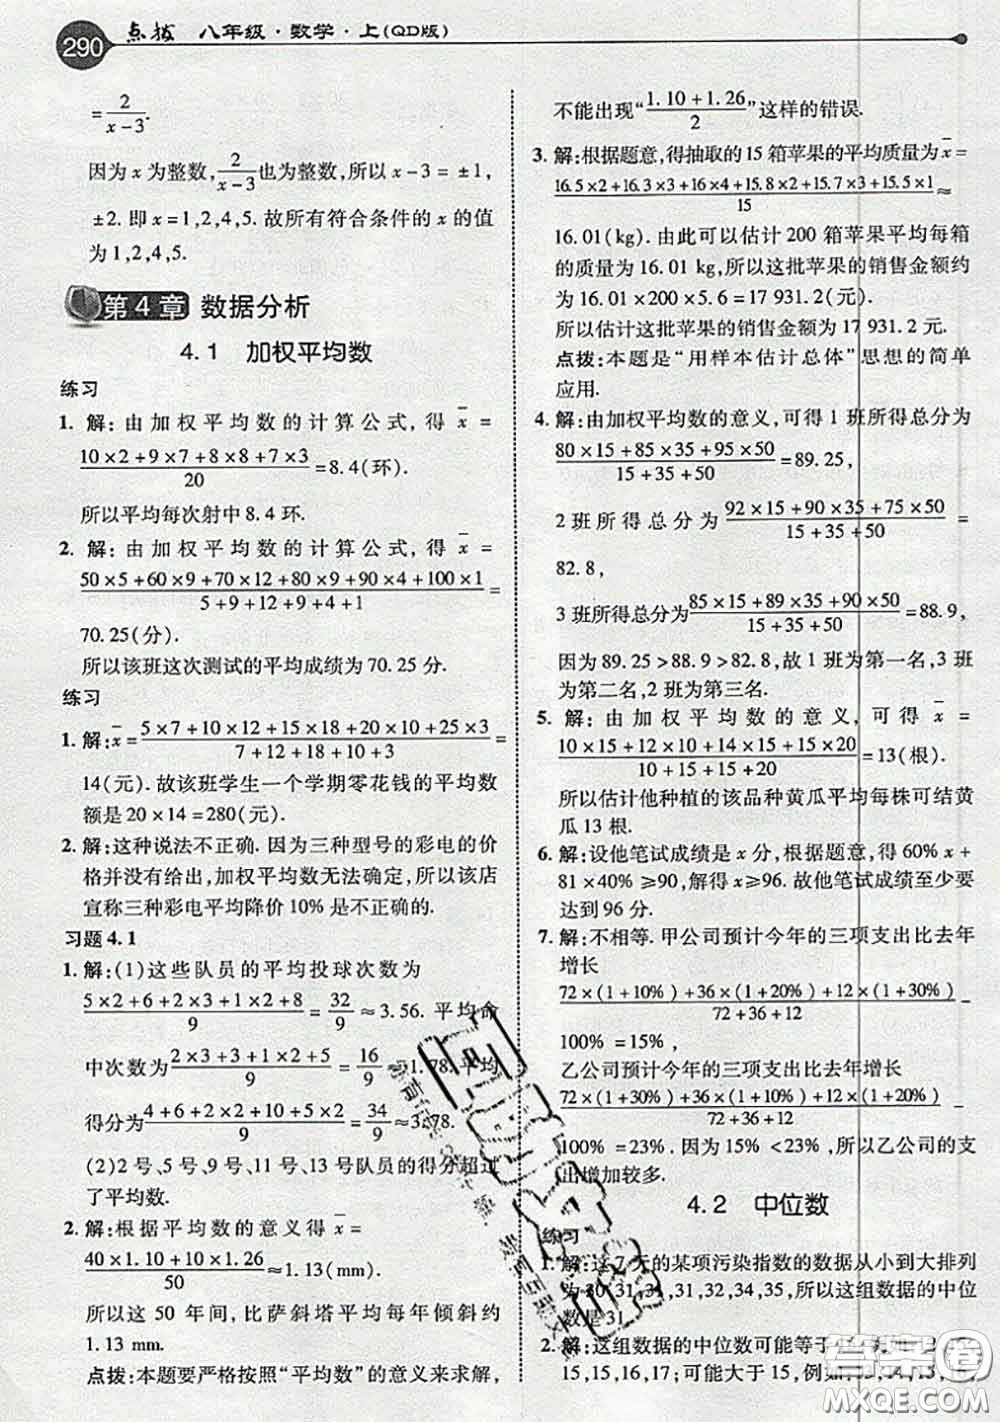 290 点拨 八年级·数学·上(QD版)
=2/(x-3).
因为 x 为整数,2/(x-3)也为整数,所以 x-3=±1,
±2. 即 x=1,2,4,5. 故所有符合条件的 x 的值
为 1,2,4,5.
第4章 数据分析
4.1 加权平均数
练习
1. 解:由加权平均数的计算公式,得 x̄ =
(10×2+9×7+8×8+7×3)/20=8.4(环).
所以平均每次射中 8.4 环.
2. 解:由加权平均数的计算公式,得 x̄ =
(50×5+60×9+70×12+80×9+90×4+100×1)/(5+9+12+9+4+1)=
70.25(分).
所以该班这次测试的平均成绩为 70.25 分.
练习
1. 解:x̄=(5×7+10×12+15×18+20×10+25×3)/(7+12+18+10+3)=
14(元). 故该班学生一个学期零花钱的平均数
额是 20×14=280(元).
2. 解:这种说法不正确. 因为三种型号的彩电的价
格并没有给出,加权平均数无法确定,所以该店
宣称三种彩电平均降价 10% 是不正确的.
习题 4.1
1. 解:(1)这些队员的平均投球次数为
(5×2+6+2×2+2+8)/9=32/9≈3.56. 平均命
中次数为(2×3+3+1×2+5)/9=16/9≈1.78. 平均
得分为(4+6+2×2+10+5×2)/9=34/9≈3.78.
(2)2 号、5 号、11 号、13 号队员的得分超过
了平均数.
2. 解:根据平均数的意义得 x̄ =
(40×1.10+10×1.26)/50≈1.13(mm).
所以这 50 年间,比萨斜塔平均每年倾斜约
1.13 mm.
点拨:本题要严格按照“平均数”的意义来求解,
不能出现“(1.10+1.26)/2”这样的错误.
3. 解:根据题意,得抽取的 15 箱苹果的平均质量为 x̄=
(16.5×2+16.3×3+16×4+15.8×2+15.7×3+15.5×1)/15≈
16.01(kg). 由此可以估计 200 箱苹果平均每箱
的质量约为 16.01 kg,所以这批苹果的销售金额约
为 16.01×200×5.6=17 931.2(元).
所以估计这批苹果的销售金额为 17 931.2 元.
点拨:本题是“用样本估计总体”思想的简单
应用.
4. 解:由加权平均数的意义,可得 1 班所得总分为
(80×15+85×35+95×50)/(15+35+50)=89.25,
2 班所得总分为(92×15+90×35+75×50)/(15+35+50)=
82.8,
3 班所得总分为(85×15+89×35+90×50)/(15+35+50)=88.9,
因为 89.25>88.9>82.8,故 1 班为第一名,3 班
为第二名,2 班为第三名.
5. 解:由加权平均数的意义,可得 x̄ =
(10×15+12×10+14×15+15×20)/(15+10+15+20)=13(根).
所以估计他种植的该品种黄瓜平均每株可结黄
瓜 13 根.
6. 解:设他笔试成绩是 x 分,根据题意,得 60%x+
81×40%≥90,解得 x≥96. 故他笔试成绩至少要
达到 96 分.
7. 解:不相等. 甲公司预计今年的三项支出比去年
增长
(72×(1+10%)+36×(1+20%)+12×(1+30%))/(72+36+12)-
100%=15%,
乙公司预计今年的三项支出比去年增长
(72×(1+30%)+36×(1+10%)+12×(1+20%))/(72+36+12)-
100%=23%. 因为 15%<23%,所以乙公司的支
出增加较多.
4.2 中位数
练习
1. 解:这 7 天的某项污染指数的数据从小到大排列
为 30,31,31,31,32,34,35,所以这组数据的中位
数是 31.
2. 解:这组数据的中位数可能等于
15,15,15;可能大于 15,例如,
答案圈
MXQE.COM